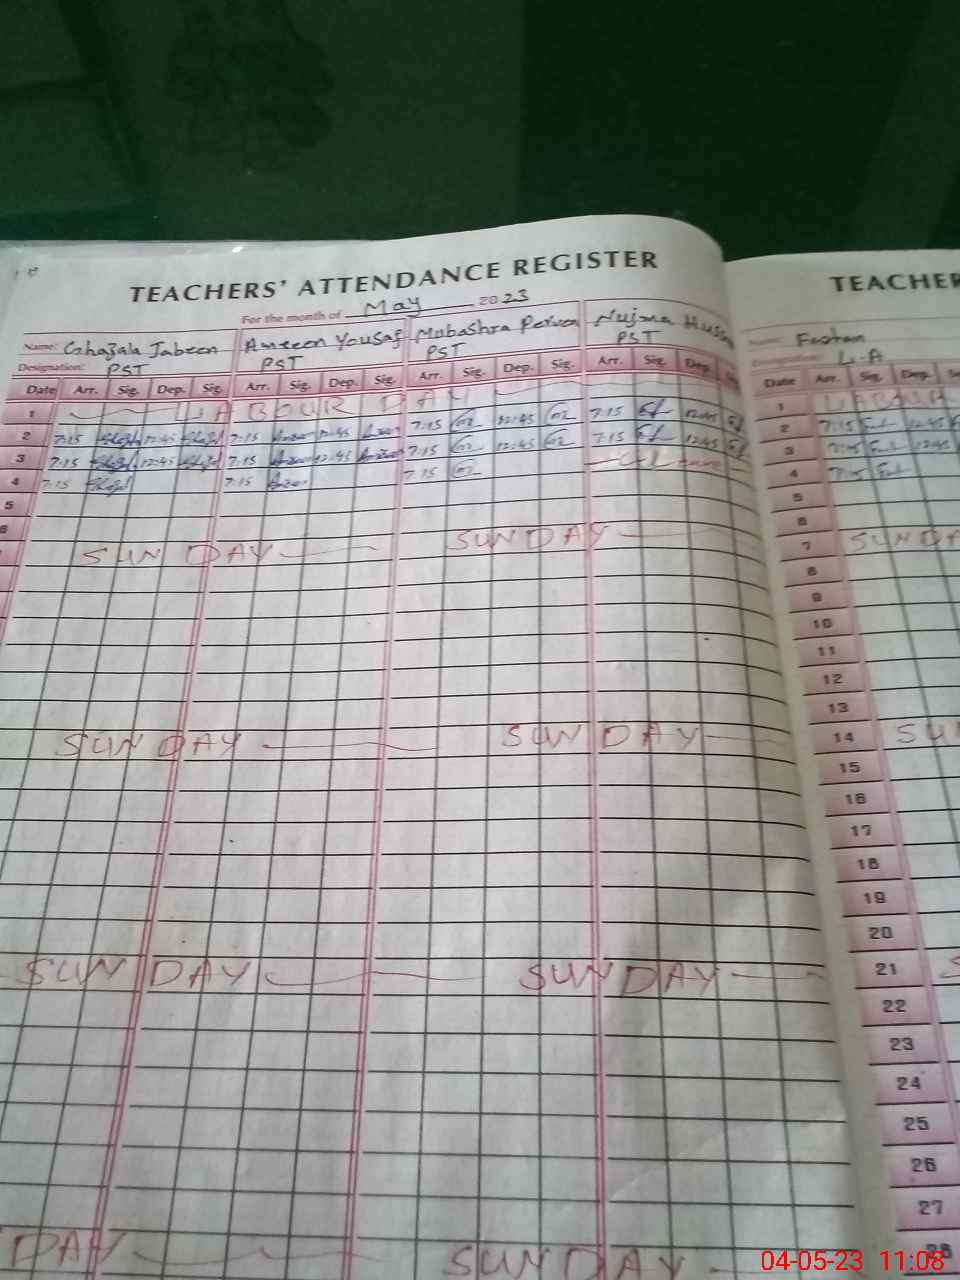 TEACHERS' ATTENDANCE REGISTER
For the month of May 2023
Name: Ghazala Jabeen Ameen Yousaf Mubashra Perveen Nujma
Designation: PST PST PST PST
Date Arr. Sig. Dep. Sig. Arr. Sig. Dep. Sig. Arr. Sig. Dep. Sig. Arr. Sig. Dep.
1 LABOUR DAY
2 7:15 12:45 7:15 12:45 7:15 12:45 7:15 12:45
3 7:15 12:45 7:15 12:45 7:15 12:45 7:15 12:45
4 7:15 7:15 7:15
5
SUNDAY SUNDAY
SUNDAY SUNDAY
SUNDAY SUNDAY
DAY SUNDAY
TEACHER
Name:
L-A
Date Arr. Sig. Dep.
1
2 7:15
3 7:15 12:45
4 7:15
5
6
7 SUNDA
8
9
10
11
12
13
14 SU
15
16
17
18
19
20
21 S
22
23
24
25
26
27
28
04-05-23 11:08